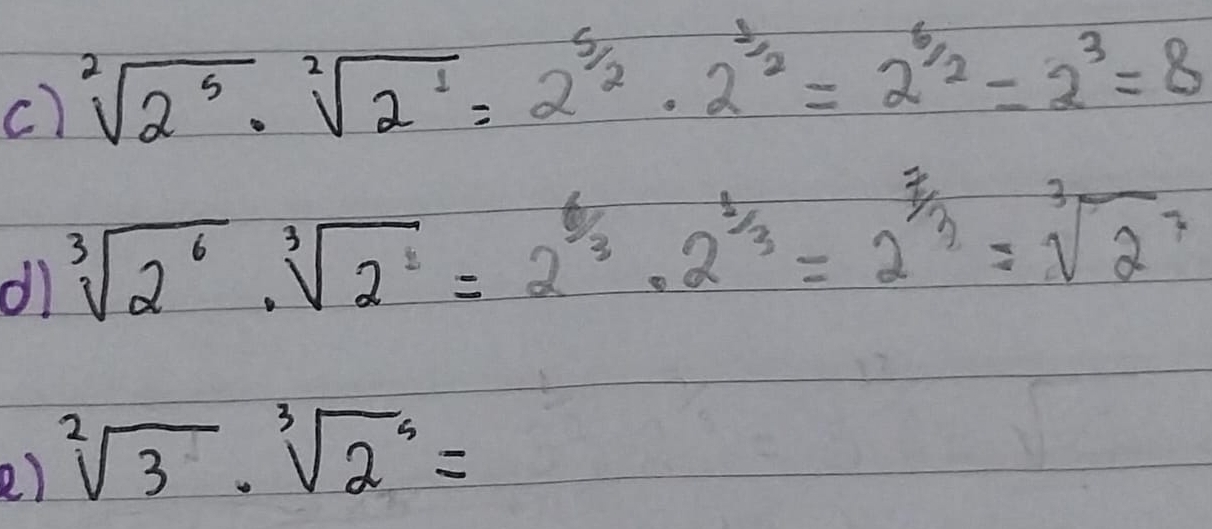 c) ²√2⁵ · ²√2¹ = 2^5/2 · 2^1/2 = 2^6/2 = 2³ = 8
d) ³√2⁶ · ³√2¹ = 2^6/3 · 2^1/3 = 2^7/3 = ³√2⁷
e) ²√3 · ³√2⁵ =